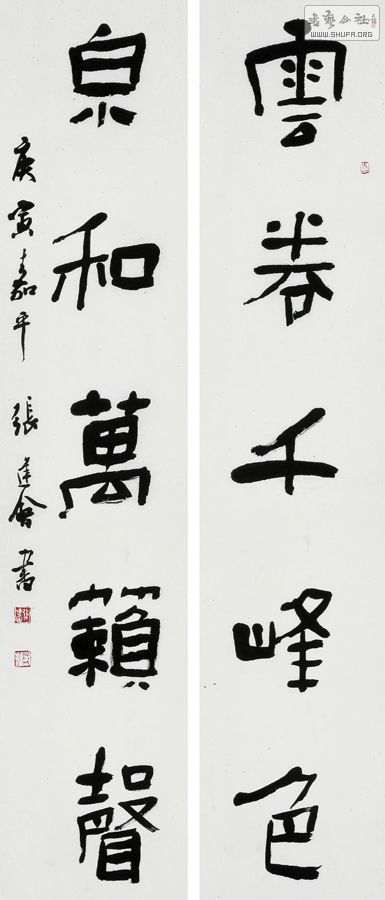 雲卷千峰色
泉和萬籟聲
庚寅嘉平 張建會書
书艺公社
WWW.SHUFA.ORG